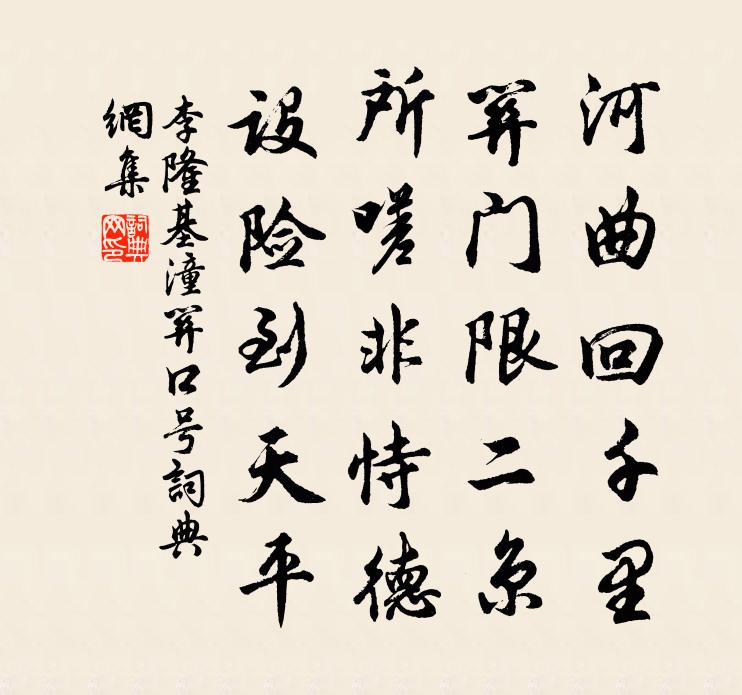 河曲回千里
關门限二京
所嗟非恃德
设险到天平
李隆基潼關口号詞典
網集
詞典
网印